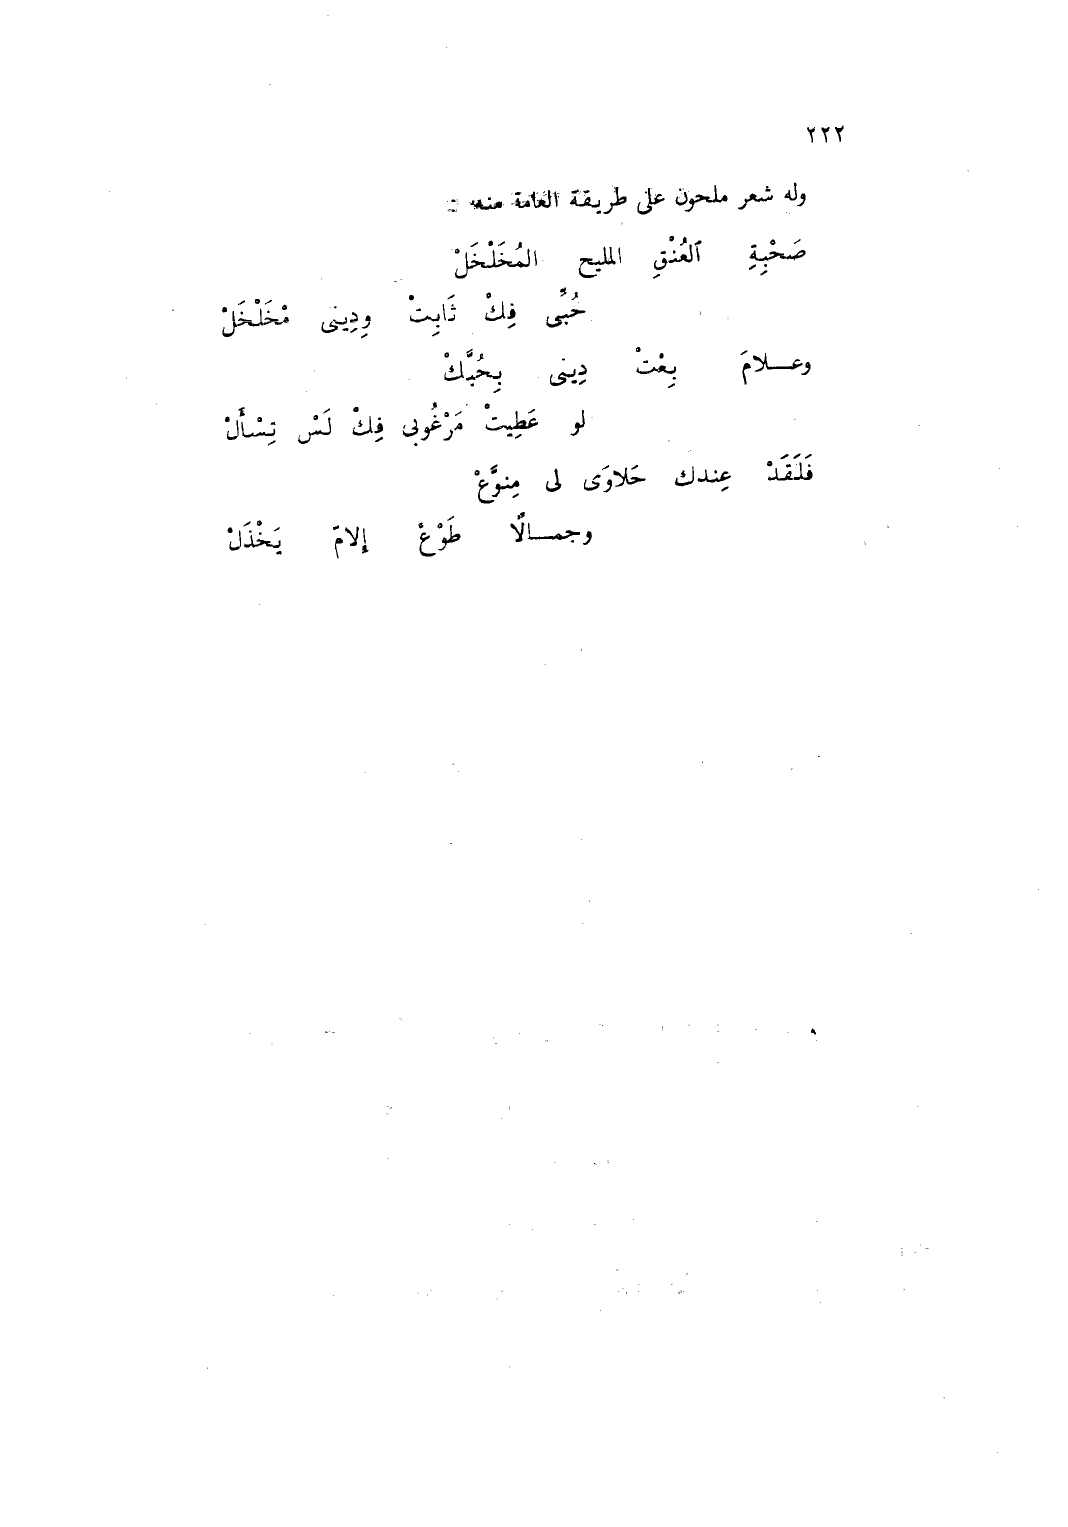 ٢٢٢
وله شعر ملحون على طريقة العامة منه :
صَحْبِةِ ٱلعُنْقِ المليح المُخَلْخَلْ
حُبِّى فِكْ ثَابِتْ ودِينى مْخَلْخَلْ
وعـــلامَ بِعْتْ دِينى بِحُبَّكْ
لو عَطِيتْ مَرْغُوبى فِكْ لَسْ تِسْأَلْ
فَلَقَدْ عِندك حَلاوَى لى مِنوَّعْ
وجمـــالًا طَوْعْ إلامّ يَخْذَلْ